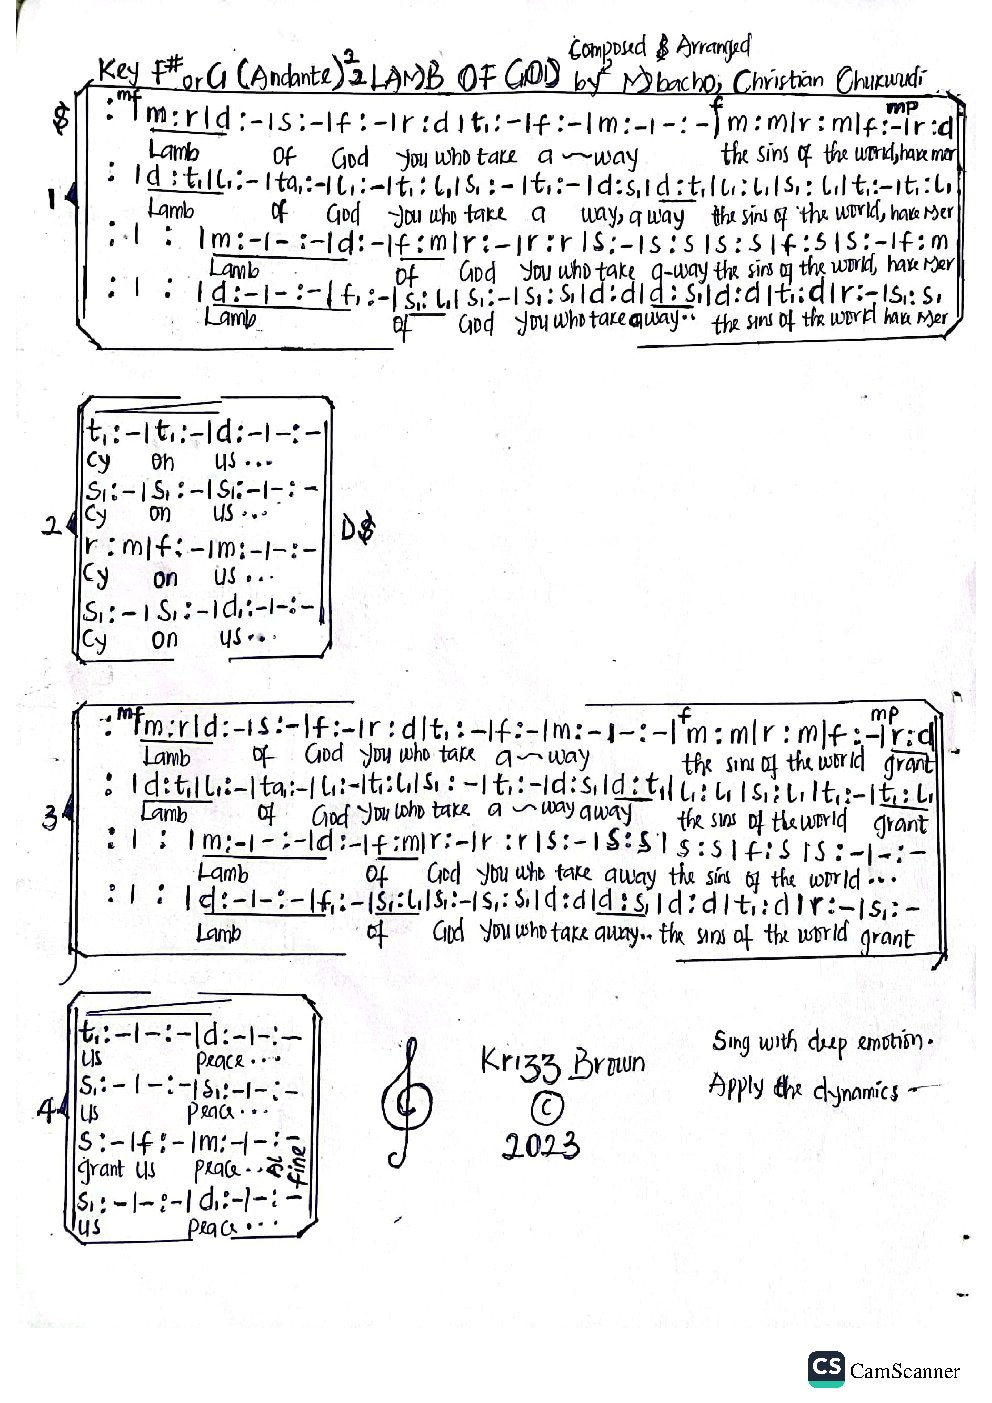 Composed & Arranged
Key F# or G (Andante) 2/2 LAMB OF GOD by Mbacho, Christian Chukwudi.
mf f mp
: | m:r|d:-|s:-|f:-|r:d|t₁:-|f:-|m:-|-:-| m:m|r:m|f:-|r:d
Lamb of God you who take a~way the sins of the world, have mer
1
: |d:t₁|l₁:-|ta₁:-|l₁:-|t₁:l₁|s₁:-|t₁:-|d:s₁|d:t₁|l₁:l₁|s₁:l₁|t₁:-|t₁:l₁
Lamb of God you who take a way, away the sins of the world, have mer
: | : |m:-|-:-|d:-|f:m|r:-|r:r|s:-|s:s|s:s|f:s|s:-|f:m
Lamb of God you who take a-way the sins of the world, have mer
: | : |d:-|-:-|f₁:-|s₁:l₁|s₁:-|s₁:s₁|d:d|d:s₁|d:d|t₁:d|r:-|s₁:s₁
Lamb of God you who take away.. the sins of the world have mer
t₁:-|t₁:-|d:-|-:-|
cy on us ...
s₁:-|s₁:-|s₁:-|-:-
cy on us ...
2 D$
r:m|f:-|m:-|-:-
cy on us ...
s₁:-|s₁:-|d₁:-|-:-
cy on us ...
mf f mp
: m:r|d:-|s:-|f:-|r:d|t₁:-|f:-|m:-|-:-| m:m|r:m|f:-|r:d
Lamb of God you who take a~way the sins of the world grant
: |d:t₁|l₁:-|ta₁:-|l₁:-|t₁:l₁|s₁:-|t₁:-|d:s₁|d:t₁|l₁:l₁|s₁:l₁|t₁:-|t₁:l₁
3 Lamb of God you who take a~way away the sins of the world grant
: | : |m:-|-:-|d:-|f:m|r:-|r:r|s:-|s:s|s:s|f:s|s:-|-:-
Lamb of God you who take away the sins of the world ...
: | : |d:-|-:-|f₁:-|s₁:l₁|s₁:-|s₁:s₁|d:d|d:s₁|d:d|t₁:d|r:-|s₁:-
Lamb of God you who take away.. the sins of the world grant
t₁:-|-:-|d:-|-:-
us peace ...
s₁:-|-:-|s₁:-|-:-
4 us peace ...
s:-|f:-|m:-|-:-
grant us peace ... AL fine
s₁:-|-:-|d₁:-|-:-
us peace ...
Krizz Brown
©
2023
Sing with deep emotion.
Apply the dynamics -
CS CamScanner